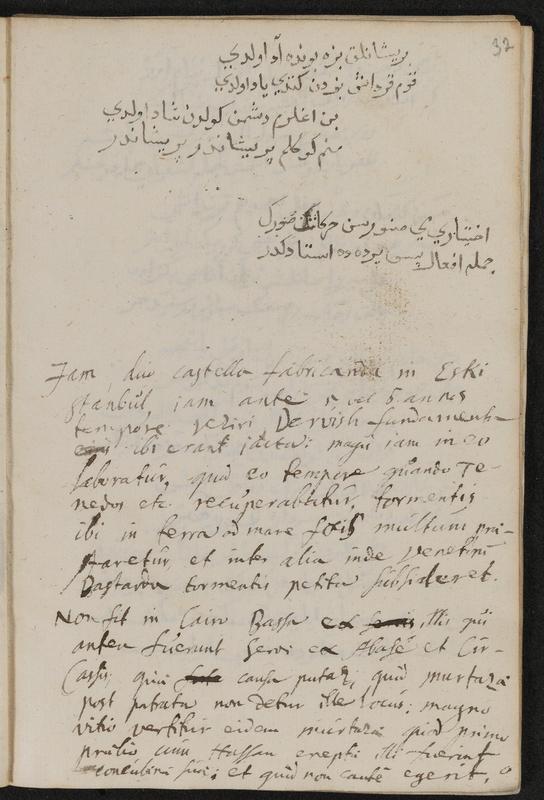 32
پریشانلق بزه بونده آد اولدي
قوم قرداش بزدن كتدي ياد اولدي
بن اغلرم دشمن كولدن شاد اولدي
بنم كوكلم پريشاندر پريشاندر
اختياري صنورسن حركاتك
جمله افعالك پس پرده ده استاد
Jam, duo castella fabricanda in Eski
Stanbul, jam ante 5 vel 6 annos
tempore veziri Dervish fundamenta
ibi erant jacta: magis iam in eo
laboratur, quod eo tempore quando Te-
nedos etc. recuperabatur, tormentis
ibi in terra ad mare multum
staretur, et inter alia inde Venetini
Bastarda tormentis petita subsideret.
Non fit in Cairo Bassa ex illis qui
antea fuerunt servi ex Abasé et Cir-
Cassis, quae causa putatur, quod murtaza
post patrata non detur ille locus: magno
vitio vertitur eidem murtaza quod primo
prælio cum Hassan erepti illi fuerint
et quod non cautè egerit,